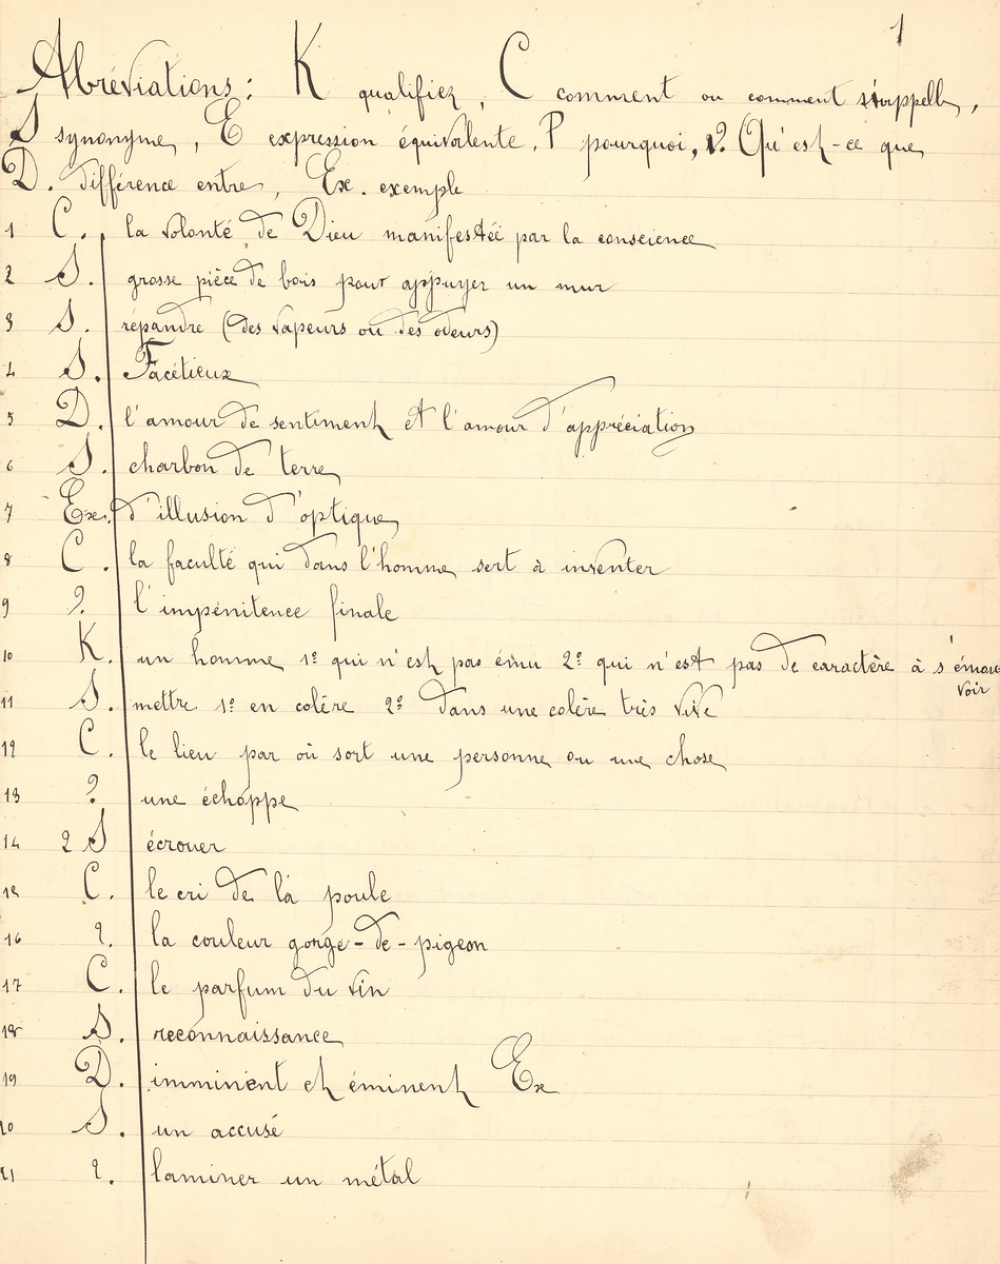 1
Abréviations: K qualifiez, C comment ou comment s'appelle,
S synonyme, E expression équivalente. P pourquoi, ? Qu'est-ce que
D. différence entre, Ex. exemple
1 C. la volonté de Dieu manifestée par la conscience
2 S. grosse pièce de bois pour appuyer un mur
3 S. répandre (des vapeurs ou des odeurs)
4 S. Facétieux
5 D. l'amour de sentiment et l'amour d'appréciation
6 S. charbon de terre
7 Ex. d'illusion d'optique
8 C. la faculté qui dans l'homme sert à inventer
9 ? l'impénitence finale
10 K. un homme 1º qui n'est pas ému 2º qui n'est pas de caractère à s'émou
voir
11 S. mettre 1º en colère 2º dans une colère très vive
12 C. le lieu par où sort une personne ou une chose
13 ? une échoppe
14 2 S écrouer
15 C. le cri de la poule
16 ?. la couleur gorge-de-pigeon
17 C. le parfum du vin
18 S. reconnaissance
19 D. imminent et éminent Ex
20 S. un accusé
21 ?. laminer un métal